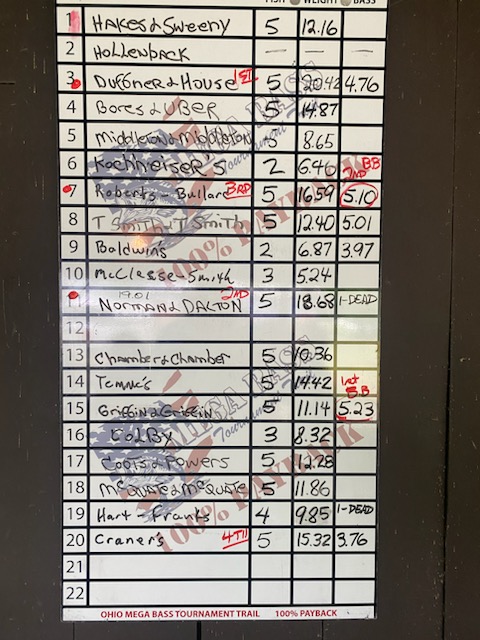 FISH WEIGHT BASS
1 HAKES & Sweeny 5 12.16
2 HOLLENBACK — — —
3 DUFFNER & House 1ST 5 20.42 4.76
4 Bores & UBER 5 14.87
5 Middleton & Middleton 8.65
6 Kochheiser's 2 6.46
2ND BB
7 Roberts - Bullard 3RD 5 16.59 5.10
8 T Smith & T Smith 5 12.40 5.01
9 Baldwin's 2 6.87 3.97
10 McClesse-Smith 3 5.24
19.01
11 NORMAN & DALTON 2ND 5 18.68 1-DEAD
12
13 Chamber & Chamber 5 10.36
14 Temple's 5 14.42
1st B.B
15 Griffin & Griffin 5 11.14 5.23
16 COLBY 3 8.32
17 Copis & Powers 5 12.28
18 McQuate & McQuate 5 11.86
19 Hart - Franks 4 9.85 1-DEAD
20 Craner's 4TH 5 15.32 3.76
21
22
OHIO MEGA BASS TOURNAMENT TRAIL 100% PAYBACK